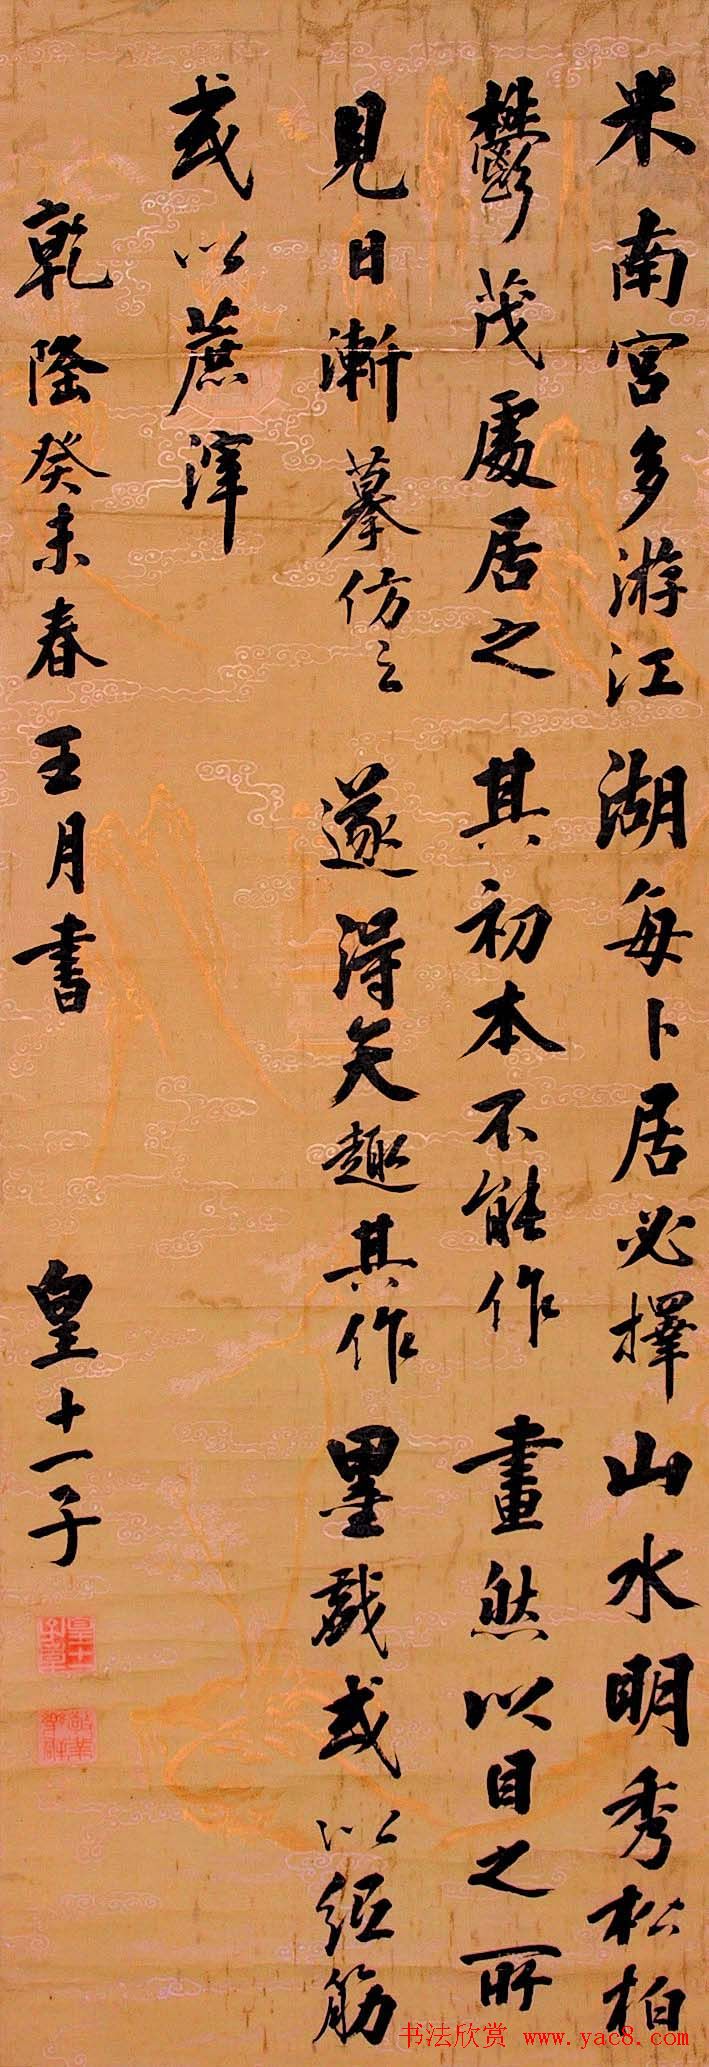 米南宫多游江湖每卜居必擇山水明秀松柏
鬱茂處居之其初本不能作畫然以目之所
見日漸摹仿之遂得天趣其作墨戲或以紙筋
或以蔗滓
乾隆癸未春王月書
皇十一子
書法欣赏 www.yac8.com